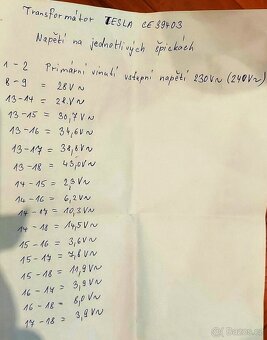 Transformátor TESLA CE39403
Napětí na jednotlivých špičkách
1-2 Primární vinutí vstupní napětí 230V~ (240V~)
8-9 = 28V~
13-14 = 28V~
13-15 = 30,7V~
13-16 = 34,6V~
13-17 = 38,8V~
13-18 = 43,0V~
14-15 = 2,3V~
14-16 = 6,2V~
14-17 = 10,3V~
14-18 = 14,5V~
15-16 = 3,6V~
15-17 = 7,8V~
15-18 = 11,9V~
16-17 = 3,9V~
16-18 = 8,0V~
17-18 = 3,9V~